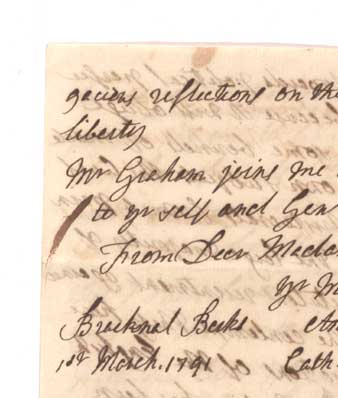 gacious reflections on the
liberty
Mr Graham joins me
to yr self and Gen
From Dear Madam
yr M
Bracknal Berks
1st March. 1791 Cath.